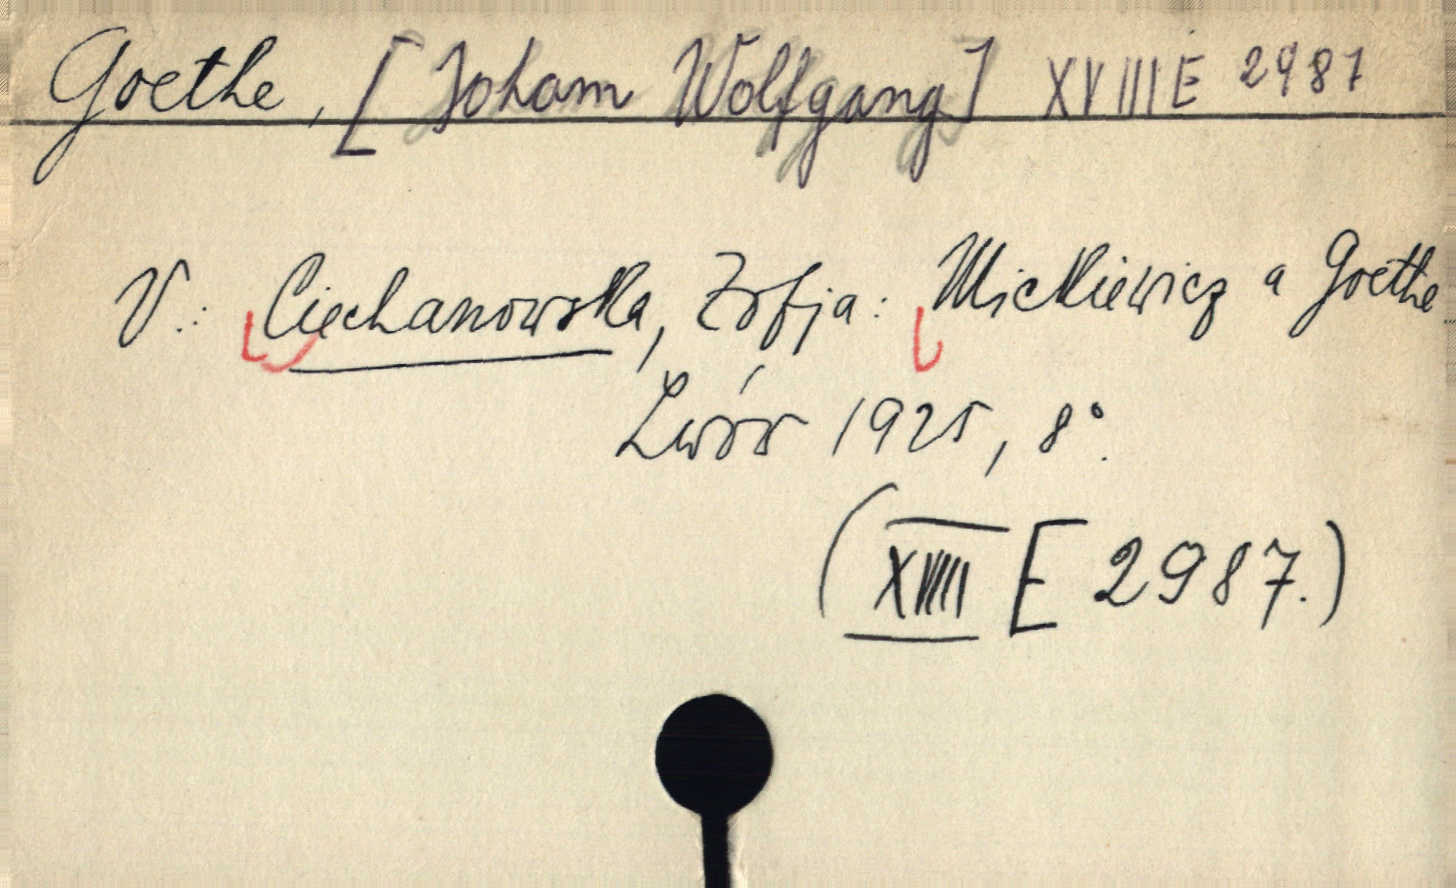 Goethe, [Joham Wolfgang] XVIII E 2987
V.: Ciechanowska, Zofja: Mickiewicz a Goethe.
Lwów 1925, 8°.
(XVIII E 2987.)